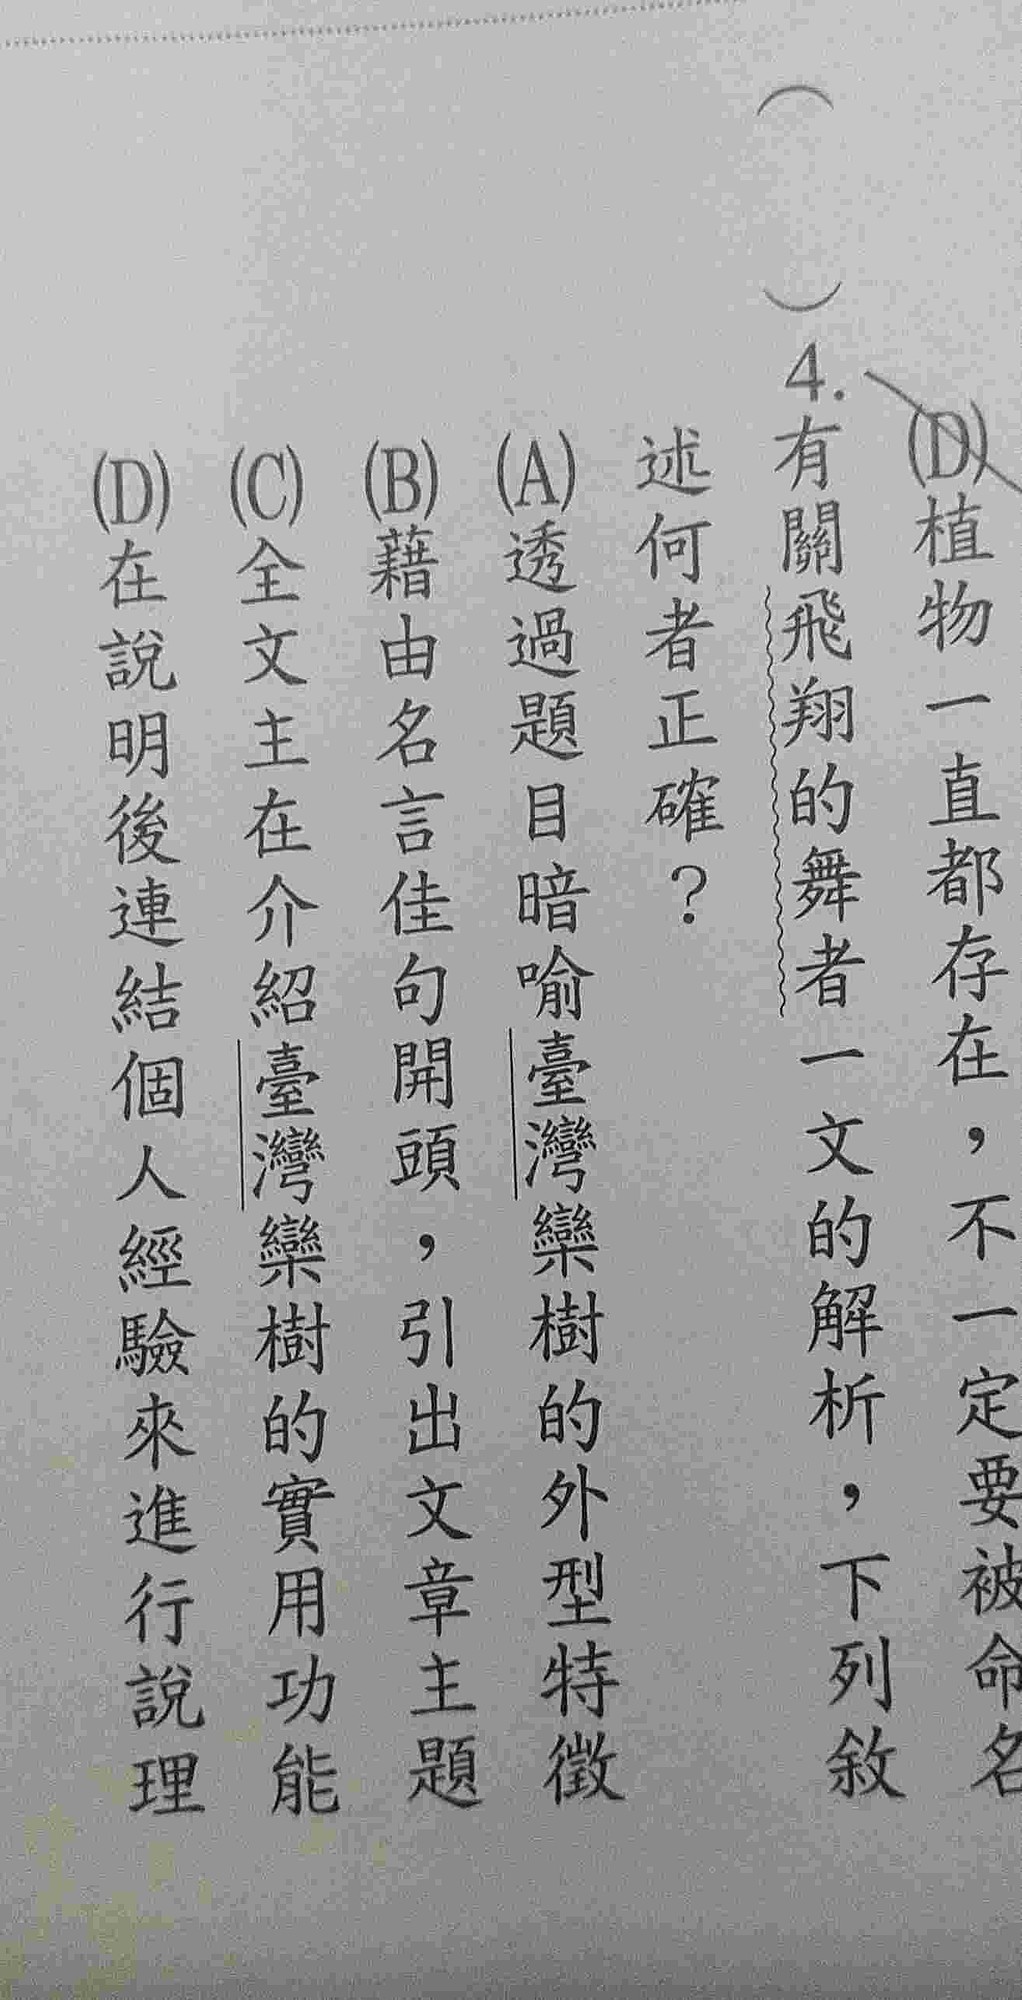 (D)植物一直都存在，不一定要被命名
（　）4.有關飛翔的舞者一文的解析，下列敘
述何者正確？
(A)透過題目暗喻臺灣欒樹的外型特徵
(B)藉由名言佳句開頭，引出文章主題
(C)全文主在介紹臺灣欒樹的實用功能
(D)在說明後連結個人經驗來進行說理